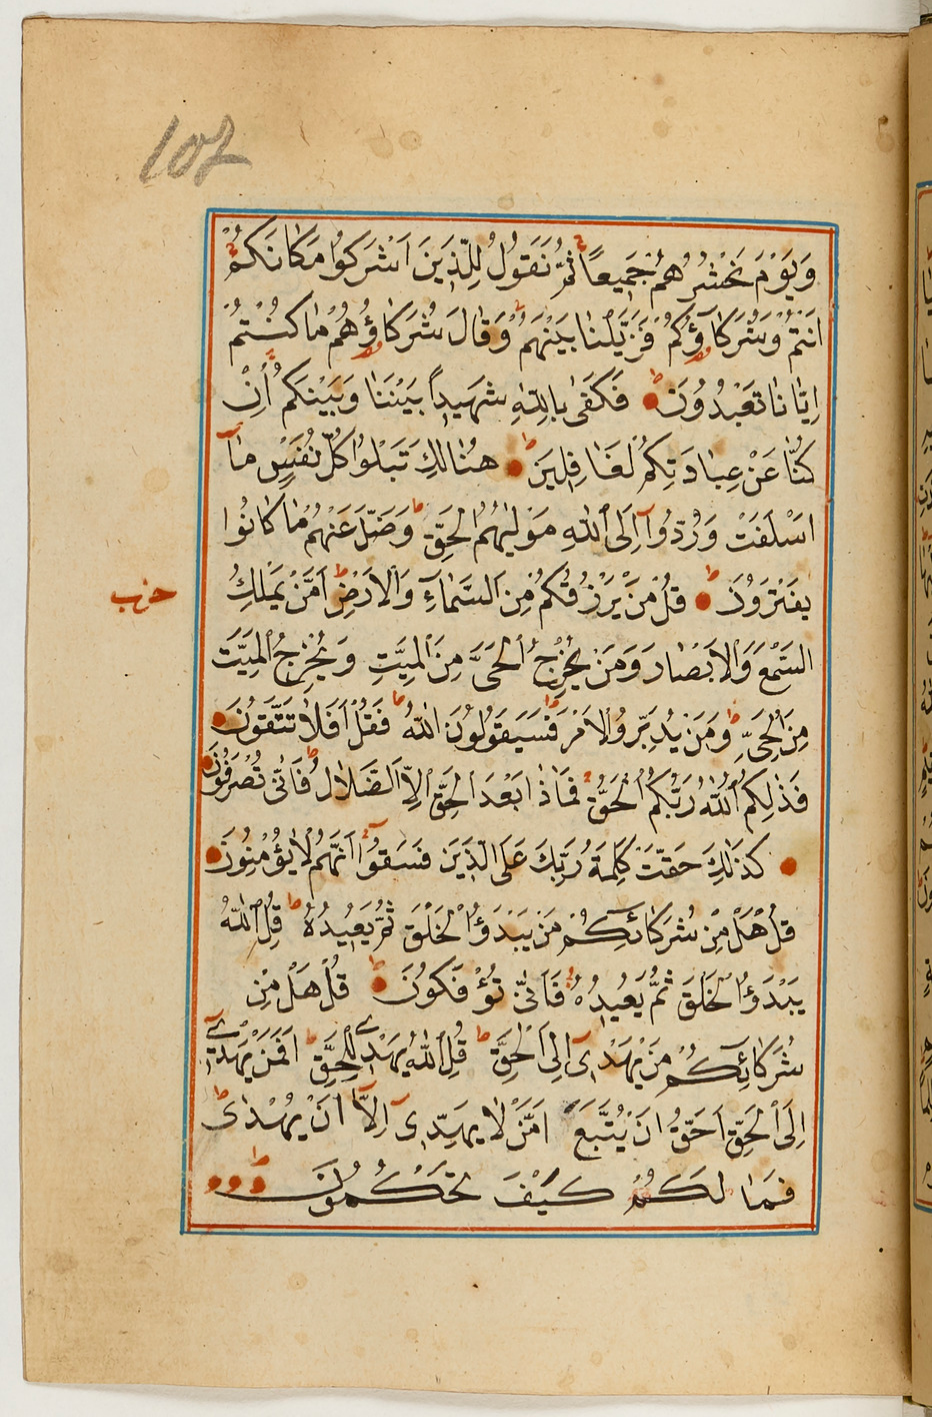 102
وَيَوْمَ نَحْشُرُهُمْ جَمِيعاً ثُمَّ نَقُولُ لِلَّذِينَ اَشْرَكُوا مَكَانَكُمْ
اَنْتُمْ وَشُرَكَاؤُكُمْ فَزَيَّلْنَا بَيْنَهُمْ وَقَالَ شُرَكَاؤُهُمْ مَا كُنْتُمْ
اِيَّانَا تَعْبُدُونَ فَكَفَى بِاللّٰهِ شَهِيداً بَيْنَنَا وَبَيْنَكُمْ اِنْ
كُنَّا عَنْ عِبَادَتِكُمْ لَغَافِلِينَ هُنَالِكَ تَبْلُوا كُلُّ نَفْسٍ مَا
اَسْلَفَتْ وَرُدُّوا اِلَى اللّٰهِ مَوْلٰيهُمُ الْحَقِّ وَضَلَّ عَنْهُمْ مَا كَانُوا
يَفْتَرُونَ قُلْ مَنْ يَرْزُقُكُمْ مِنَ السَّمَاءِ وَالْاَرْضِ اَمَّنْ يَمْلِكُ
حزب
السَّمْعَ وَالْاَبْصَارَ وَمَنْ يُخْرِجُ الْحَيَّ مِنَ الْمَيِّتِ وَيُخْرِجُ الْمَيِّتَ
مِنَ الْحَيِّ وَمَنْ يُدَبِّرُ الْاَمْرَ فَسَيَقُولُونَ اللّٰهُ فَقُلْ اَفَلَا تَتَّقُونَ
فَذٰلِكُمُ اللّٰهُ رَبُّكُمُ الْحَقُّ فَمَاذَا بَعْدَ الْحَقِّ اِلَّا الضَّلَالُ فَاَنّٰى تُصْرَفُونَ
كَذٰلِكَ حَقَّتْ كَلِمَةُ رَبِّكَ عَلَى الَّذِينَ فَسَقُوا اَنَّهُمْ لَا يُؤْمِنُونَ
قُلْ هَلْ مِنْ شُرَكَائِكُمْ مَنْ يَبْدَؤُا الْخَلْقَ ثُمَّ يُعِيدُهُ قُلِ اللّٰهُ
يَبْدَؤُا الْخَلْقَ ثُمَّ يُعِيدُهُ فَاَنّٰى تُؤْفَكُونَ قُلْ هَلْ مِنْ
شُرَكَائِكُمْ مَنْ يَهْدِي اِلَى الْحَقِّ قُلِ اللّٰهُ يَهْدِي لِلْحَقِّ اَفَمَنْ يَهْدِي
اِلَى الْحَقِّ اَحَقُّ اَنْ يُتَّبَعَ اَمَّنْ لَا يَهِدِّي اِلَّا اَنْ يُهْدٰى
فَمَا لَكُمْ كَيْفَ تَحْكُمُونَ